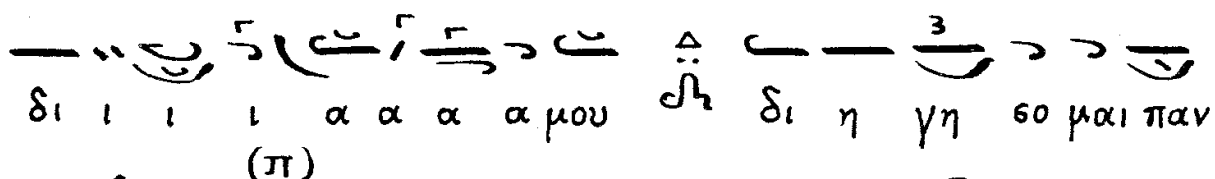 δι ι ι ι α α α α μου δι η γη σο μαι παν
(π)